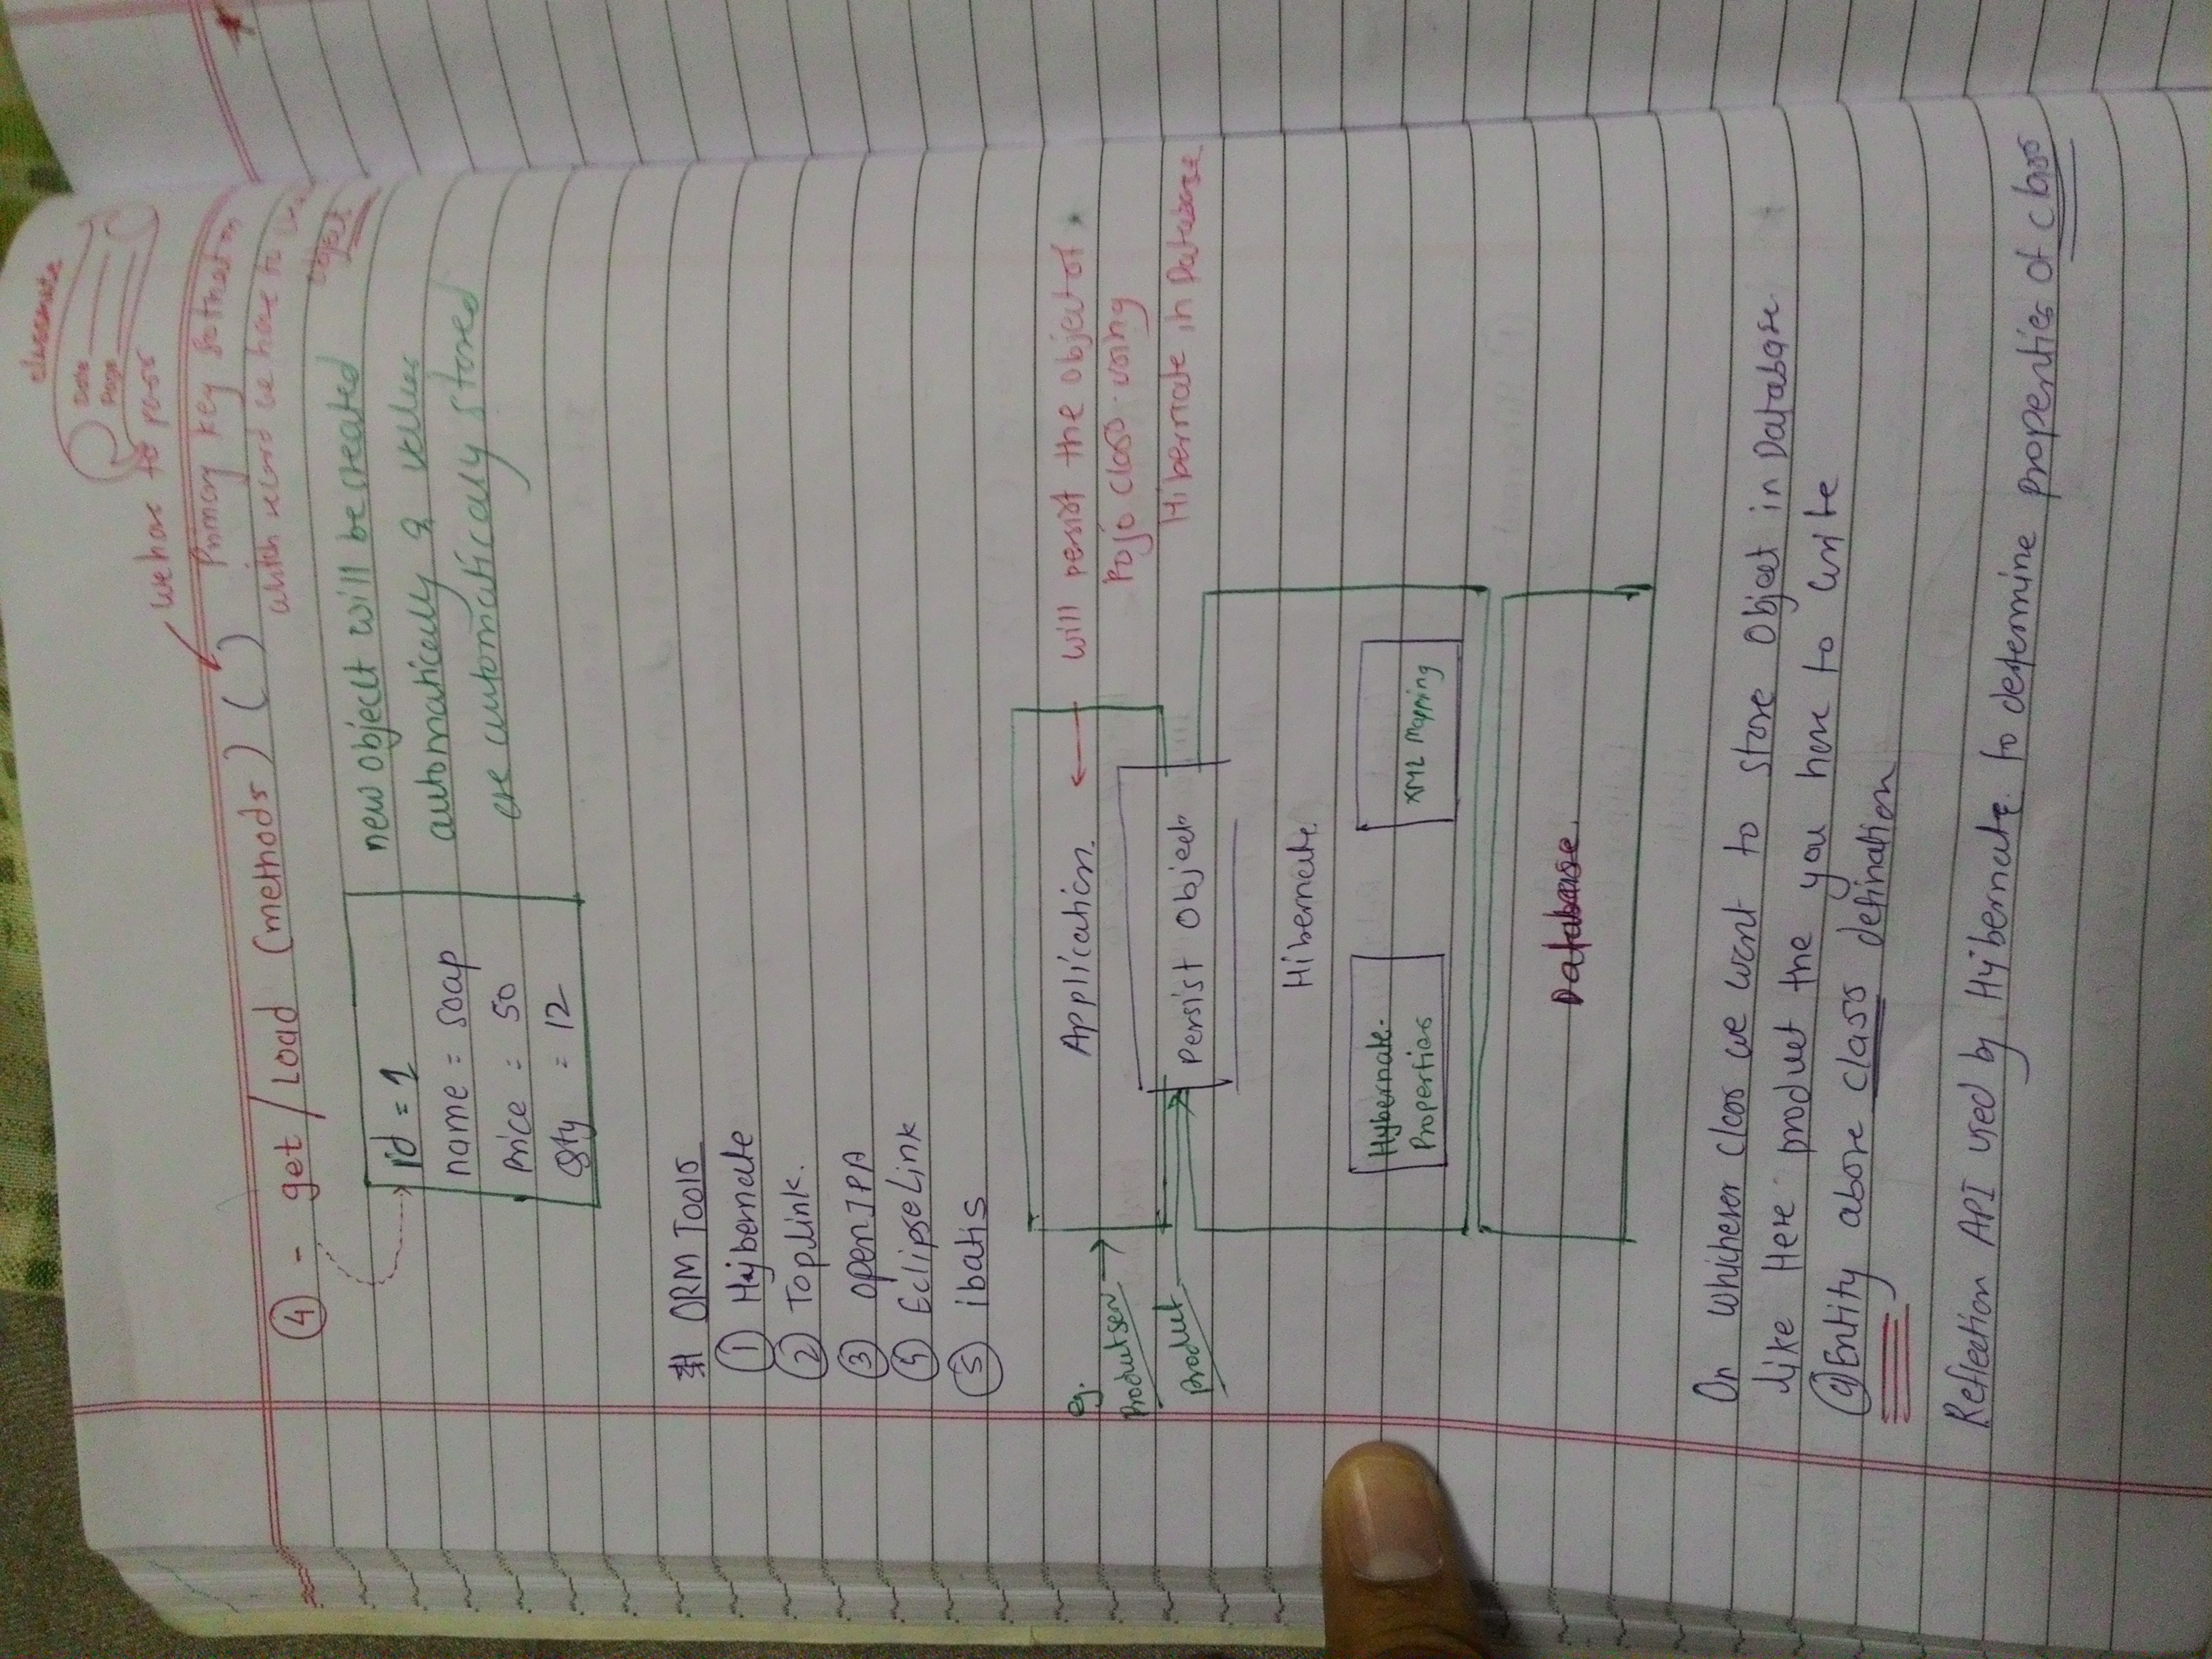 classmate
Date
Page
we have to pass
Primary key so that on
which record we have to
object
④ - get/Load (methods) ( )
id = 1
name = soap
Price = 50
Qty = 12
new objeclt will be created
automatically & values
are automatically stored
# ORM Tools
① Hybernate
② Toplink.
③ openJPA
④ EclipseLink
⑤ ibatis
eg.
Productserv
Product
Application.
will persist the object of
Pojo class using
Hibernate in Database
Persist Object
Hibernate
Hybernate-
Properties
XML Mapping
Database.
On whichever class we want to store Object in Database
like Here product the you have to write
@Entity above class defination
Reflection API used by Hybernate to determine properties of class